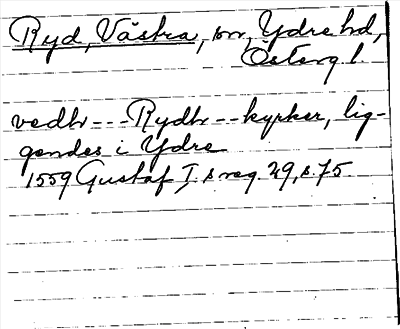 Ryd, Västra, sn, Ydre hd,
Östergl.
vedh --- Rydh -- kyrker, lig-
gendes i Ydre
1559 Gustaf I.s reg. 29, s. 75.